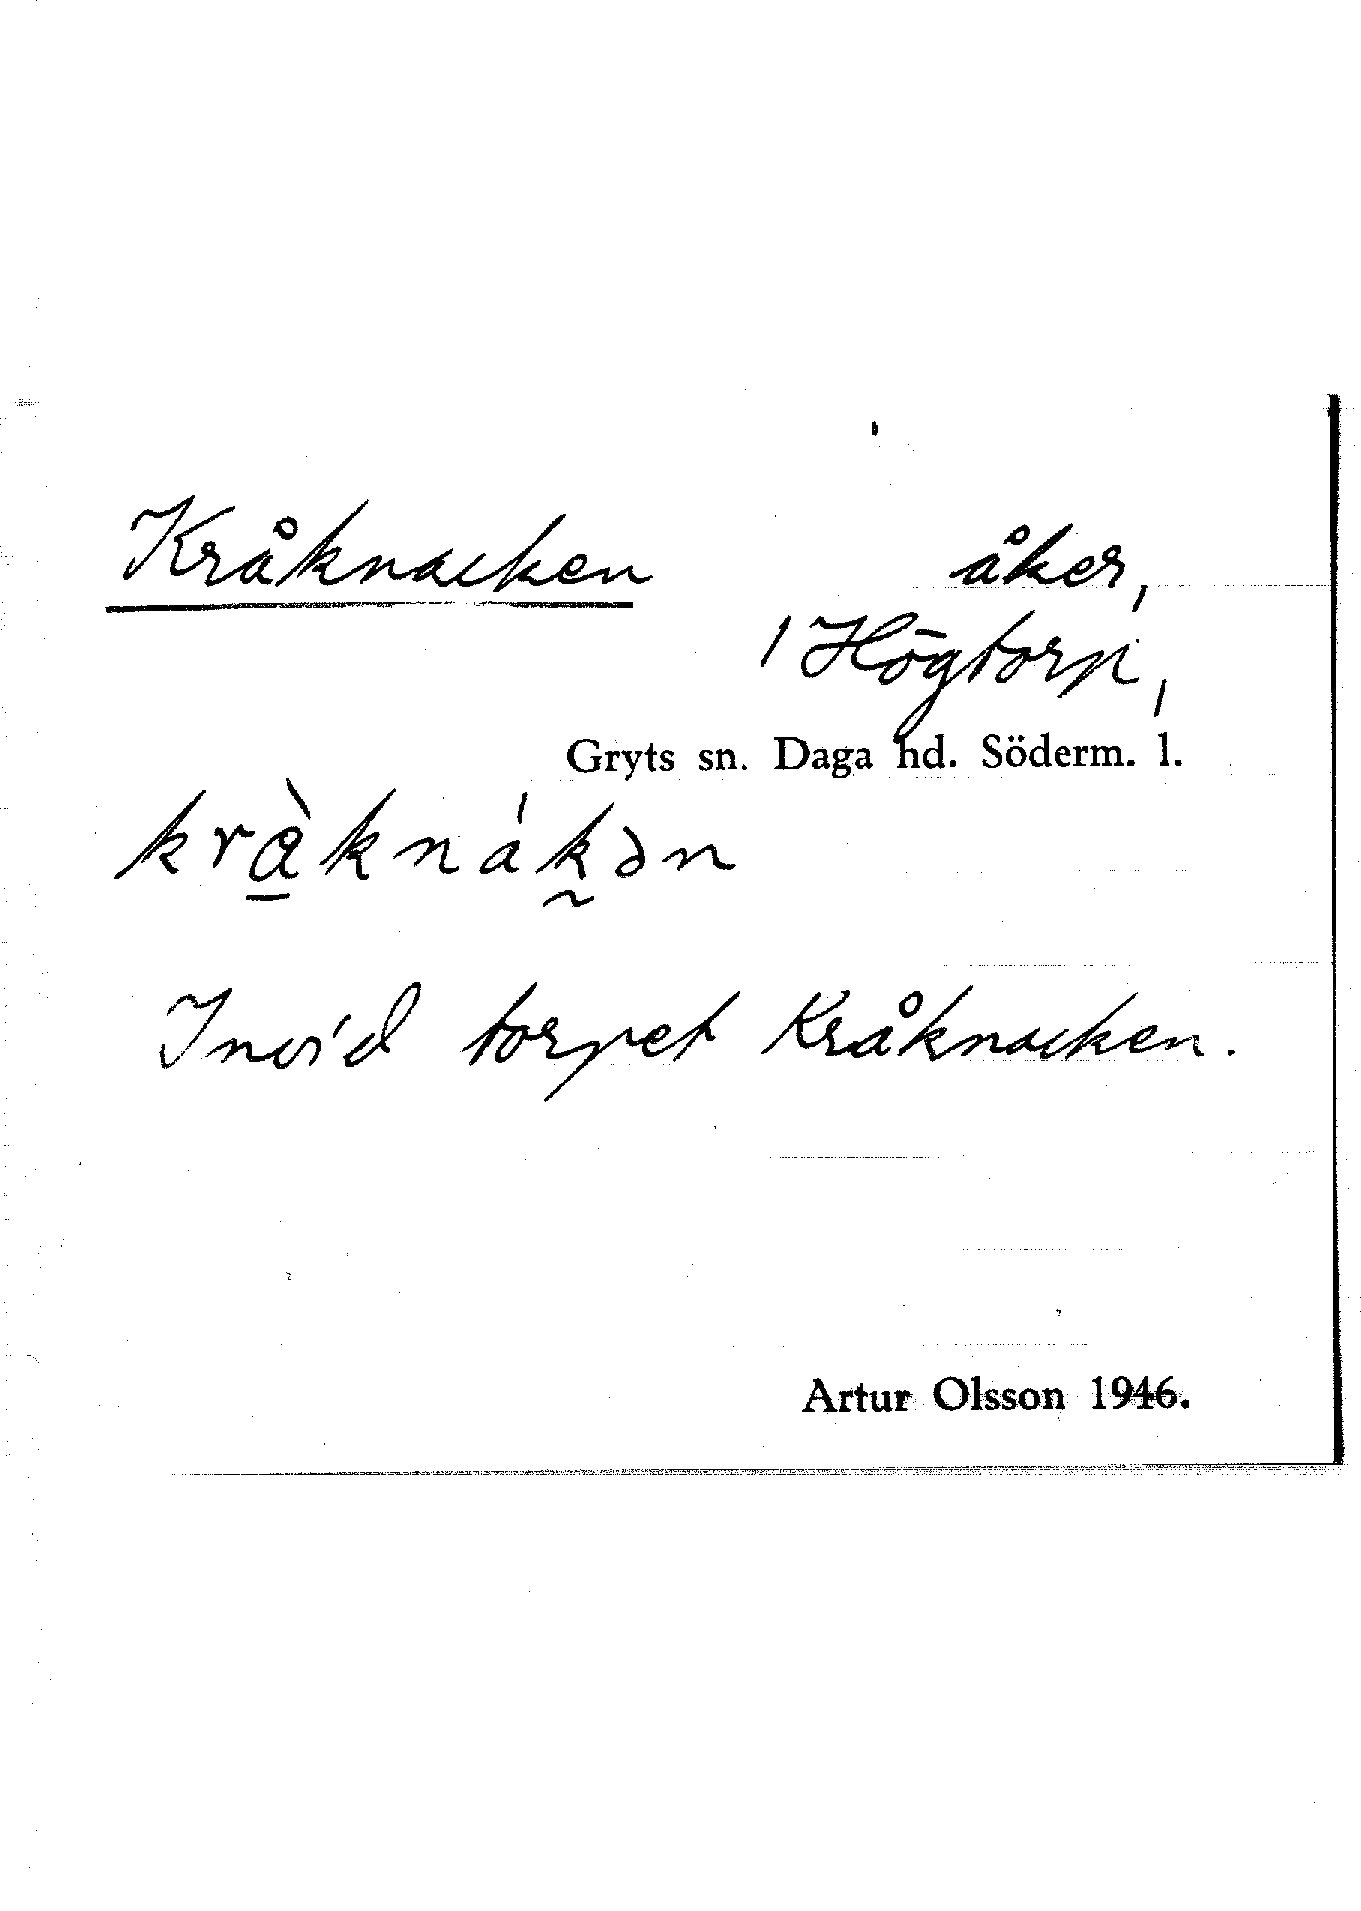 Kråknacken åker,
1 Högtorp,
Gryts sn. Daga hd. Söderm. l.
krå̀knákən
Invid torpet Kråknacken.
Artur Olsson 1946.